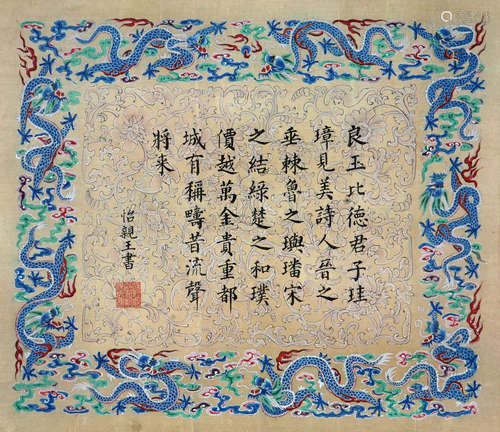 良玉比德君子珪
璋見美詩人晉之
垂棘魯之璵璠宋
之結綠楚之和璞
價越萬金貴重都
城有稱疇昔流聲
將來
怡親王書